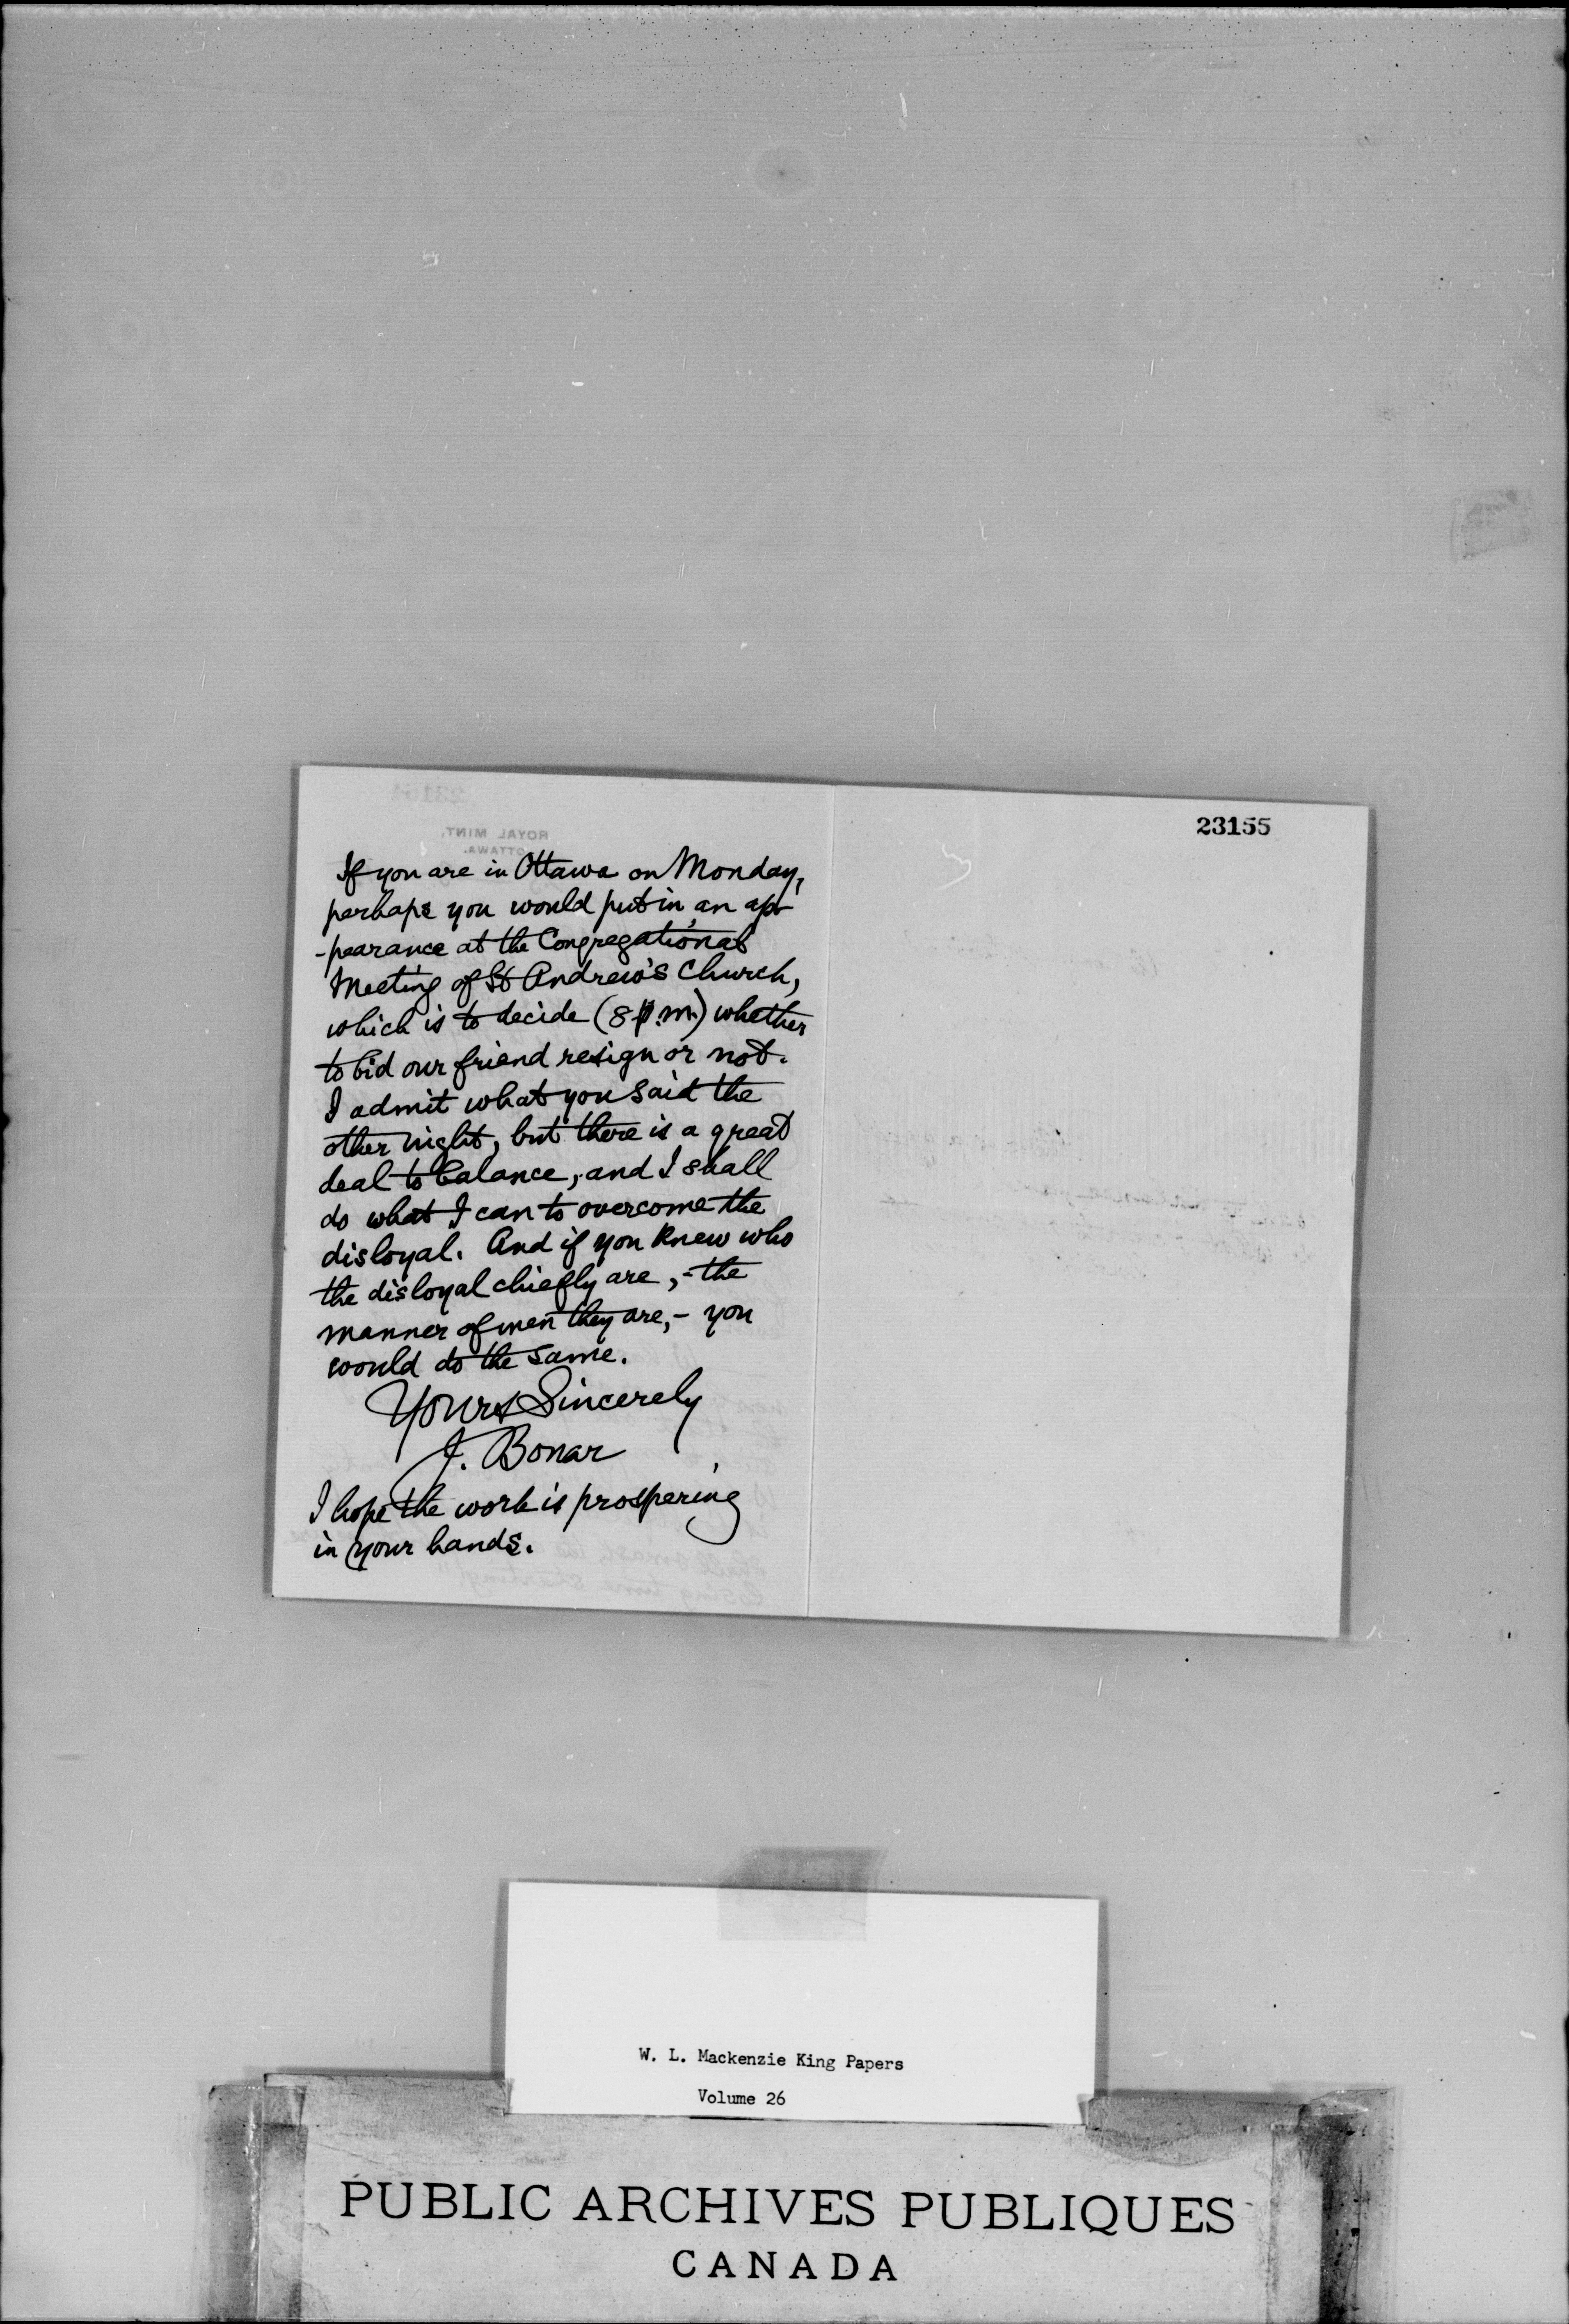 23155
If you are in Ottawa on Monday,
perhaps you would put in an ap-
-pearance at the Congregational
Meeting of St Andrew's Church,
which is to decide (8 p.m.) whether
to bid our friend resign or not.
I admit what you said the
other night, but there is a great
deal to balance, and I shall
do what I can to overcome the
disloyal. And if you knew who
the disloyal chiefly are, - the
manner of men they are, - you
would do the same.
Yours Sincerely
J. Bonar
I hope the work is prospering
in your hands.
ROYAL MINT.
OTTAWA.
W. L. Mackenzie King Papers
Volume 26
PUBLIC ARCHIVES PUBLIQUES
CANADA